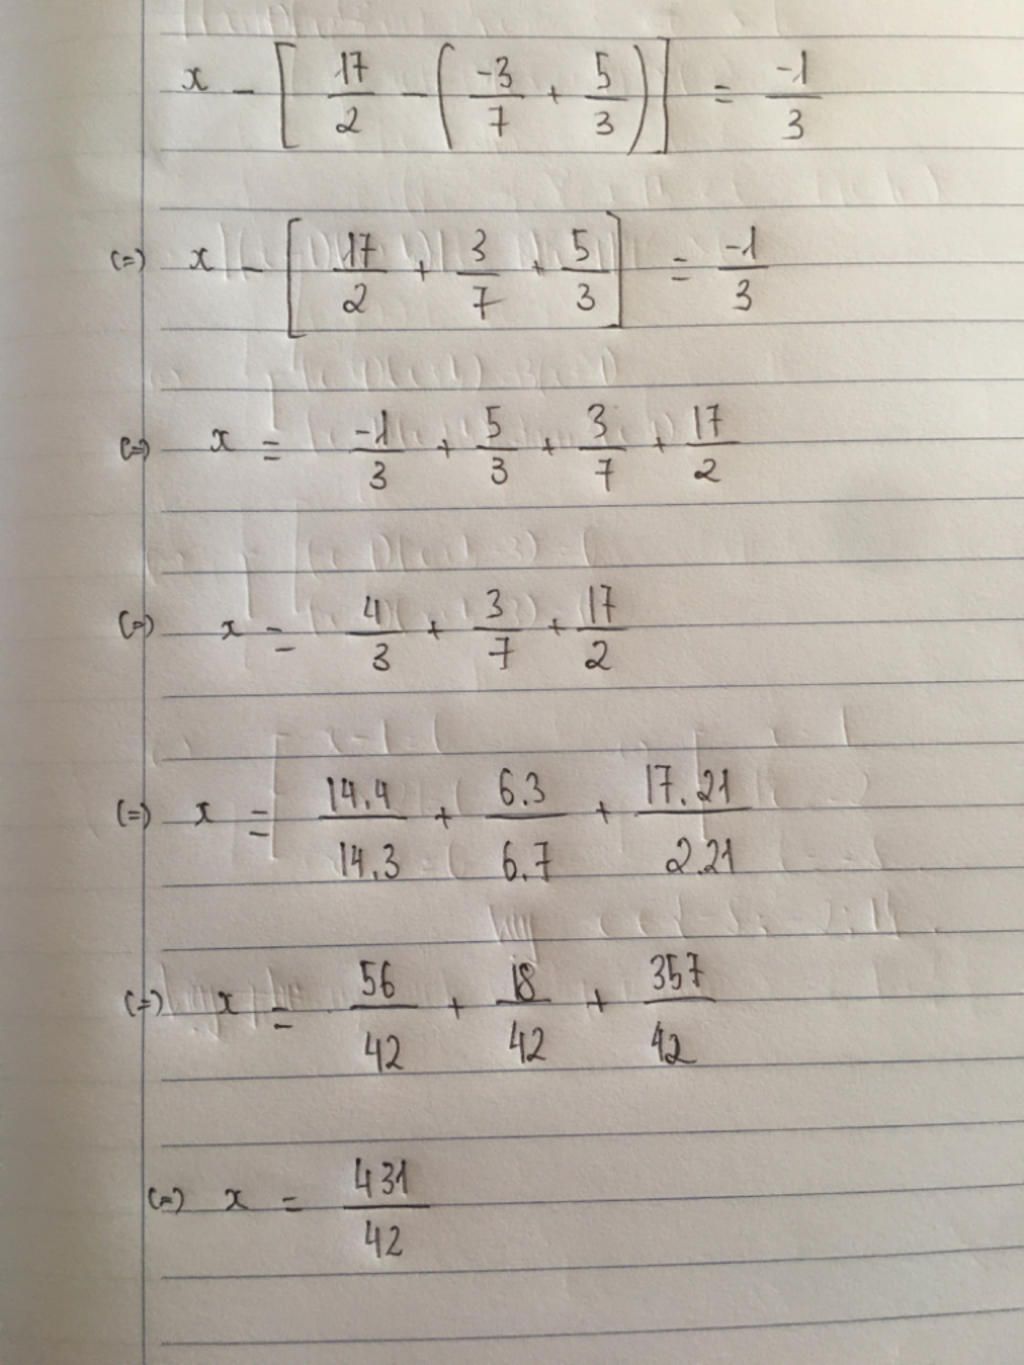 x - [ 17/2 - ( -3/7 + 5/3 ) ] = -1/3
(=) x - [ 17/2 + 3/7 + 5/3 ] = -1/3
(=) x = -1/3 + 5/3 + 3/7 + 17/2
(=) x = 4/3 + 3/7 + 17/2
(=) x = 14.4/14.3 + 6.3/6.7 + 17.21/2.21
(=) x = 56/42 + 18/42 + 357/42
(=) x = 431/42